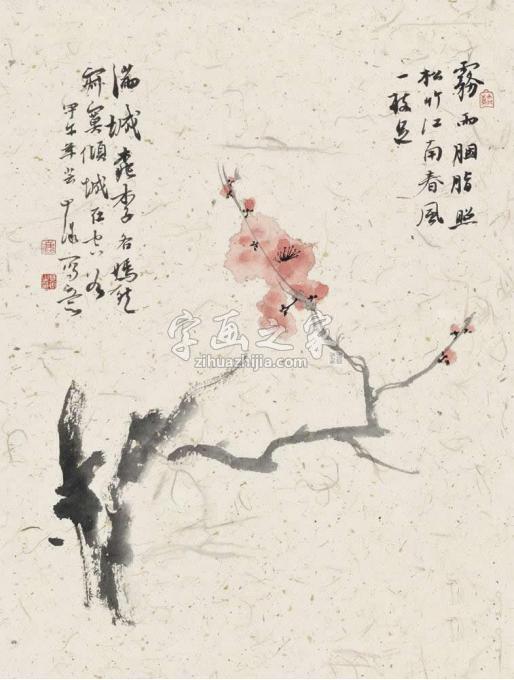 霧雨胭脂照
松竹江南春風
一枝足
滿城桃李各嫣然
寂寞傾城在空谷
甲午年芸
寫意
字画之家
zihuazhijia.com